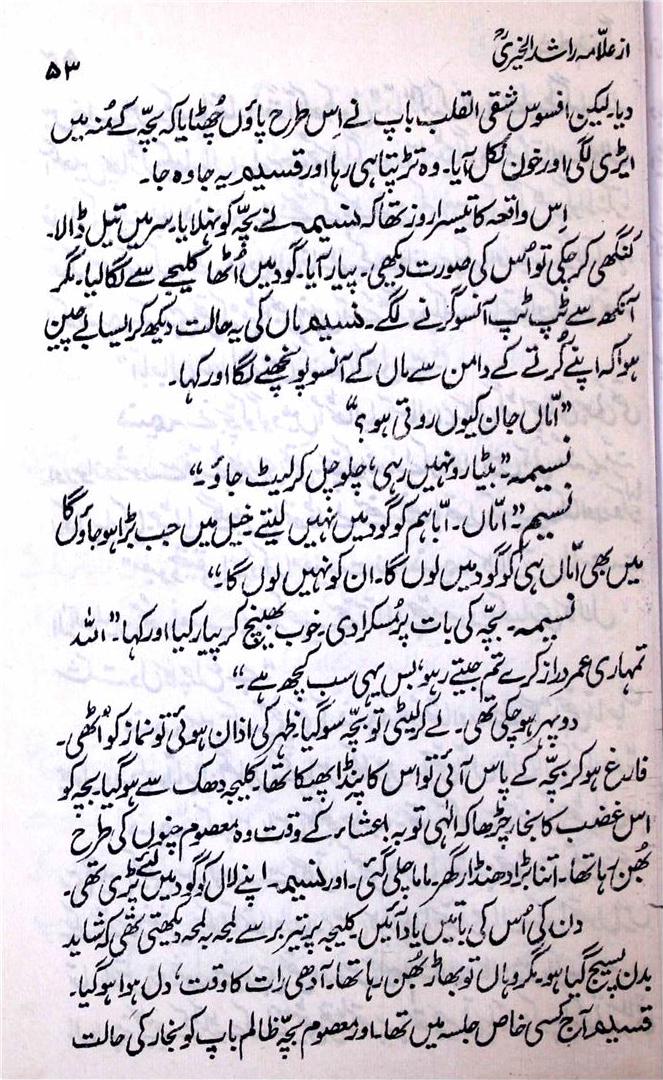 از علامہ راشد الخیریؒ
۵۳
دیا۔ لیکن افسوس شقی القلب باپ نے اِس طرح پاؤں چھٹایا کہ بچّہ کے مُنہ میں
ایڑی لگی اور خون نکل آیا۔ وہ تڑپتا ہی رہا اور قسیم یہ جا وہ جا۔
اِس واقعہ کا تیسرا روز تھا کہ نسیمہ نے بچّہ کو نہلایا۔ سر میں تیل ڈالا۔
کنگھی کر چکی تو اُس کی صورت دیکھی۔ پیار آیا۔ گود میں اُٹھا کلیجے سے لگا لیا۔ مگر
آنکھ سے ٹپ ٹپ آنسو گرنے لگے۔ نسیم ماں کی یہ حالت دیکھ کر ایسا بے چین
ہوا کہ اپنے کُرتے کے دامن سے ماں کے آنسو پونچھنے لگا اور کہا۔
"امّاں جان کیوں روتی ہو؟"
نسیمہ۔ "بیٹا رو نہیں رہی، چلو چل کر لیٹ جاؤ۔"
نسیم۔ "امّاں۔ ابّا ہم کو گود میں نہیں لیتے۔ خیل میں جب بڑا ہو جاؤں گا
میں بھی امّاں ہی کو گود میں لوں گا۔ ان کو نہیں لوں گا۔"
نسیمہ۔ بچّہ کی بات پر مُسکرا دی۔ خوب بھینچ کر پیار کیا اور کہا۔ "اللہ
تمہاری عمر دراز کرے تم جیتے رہو، بس یہی سب کچھ ہے۔"
دوپہر ہو چکی تھی۔ لے کر لیٹی تو بچّہ سو گیا۔ ظہر کی اذان ہوئی تو نماز کو اُٹھی۔
فارغ ہو کر بچّہ کے پاس آئی تو اس کا پنڈا پھیکا تھا۔ کلیجہ دھک سے ہو گیا۔ بچہ کو
اس غضب کا بخار چڑھا کہ الٰہی توبہ! عشاء کے وقت وہ معصوم چنوں کی طرح
بُھن رہا تھا۔ اتنا بڑا ڈھنڈار گھر۔ ماما چلی گئی۔ اور نسیمہ اپنے لال کو گود میں لئے پڑی تھی۔
دن کی اُس کی باتیں یاد آئیں۔ کلیجہ پر تیر برسے لمحہ بہ لمحہ دیکھتی تھی کہ شاید
بدن پسیج گیا ہو۔ مگر وہاں تو بھاڑ بُھن رہا تھا۔ آدھی رات کا وقت، دل ہوا ہو گیا۔
قسیم آج کسی خاص جلسہ میں تھا۔ اور معصوم بچّہ ظالم باپ کو بخار کی حالت